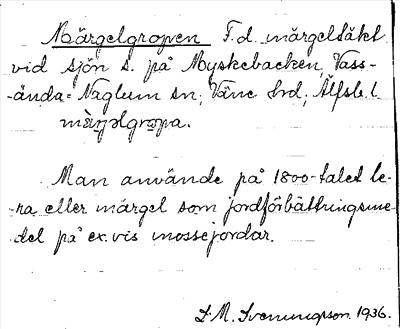 Märgelgropen F.d. märgeltäkt
vid sjön s. på Myskebacken, Vass-
ända= Naglum sn, Väne hd, Älfsb. l
märgəlgropa.
Man använde på 1800-talet le-
ra eller märgel som jordförbättringsme-
del på ex.vis mossejordar.
S. M. Svenungsson. 1936.